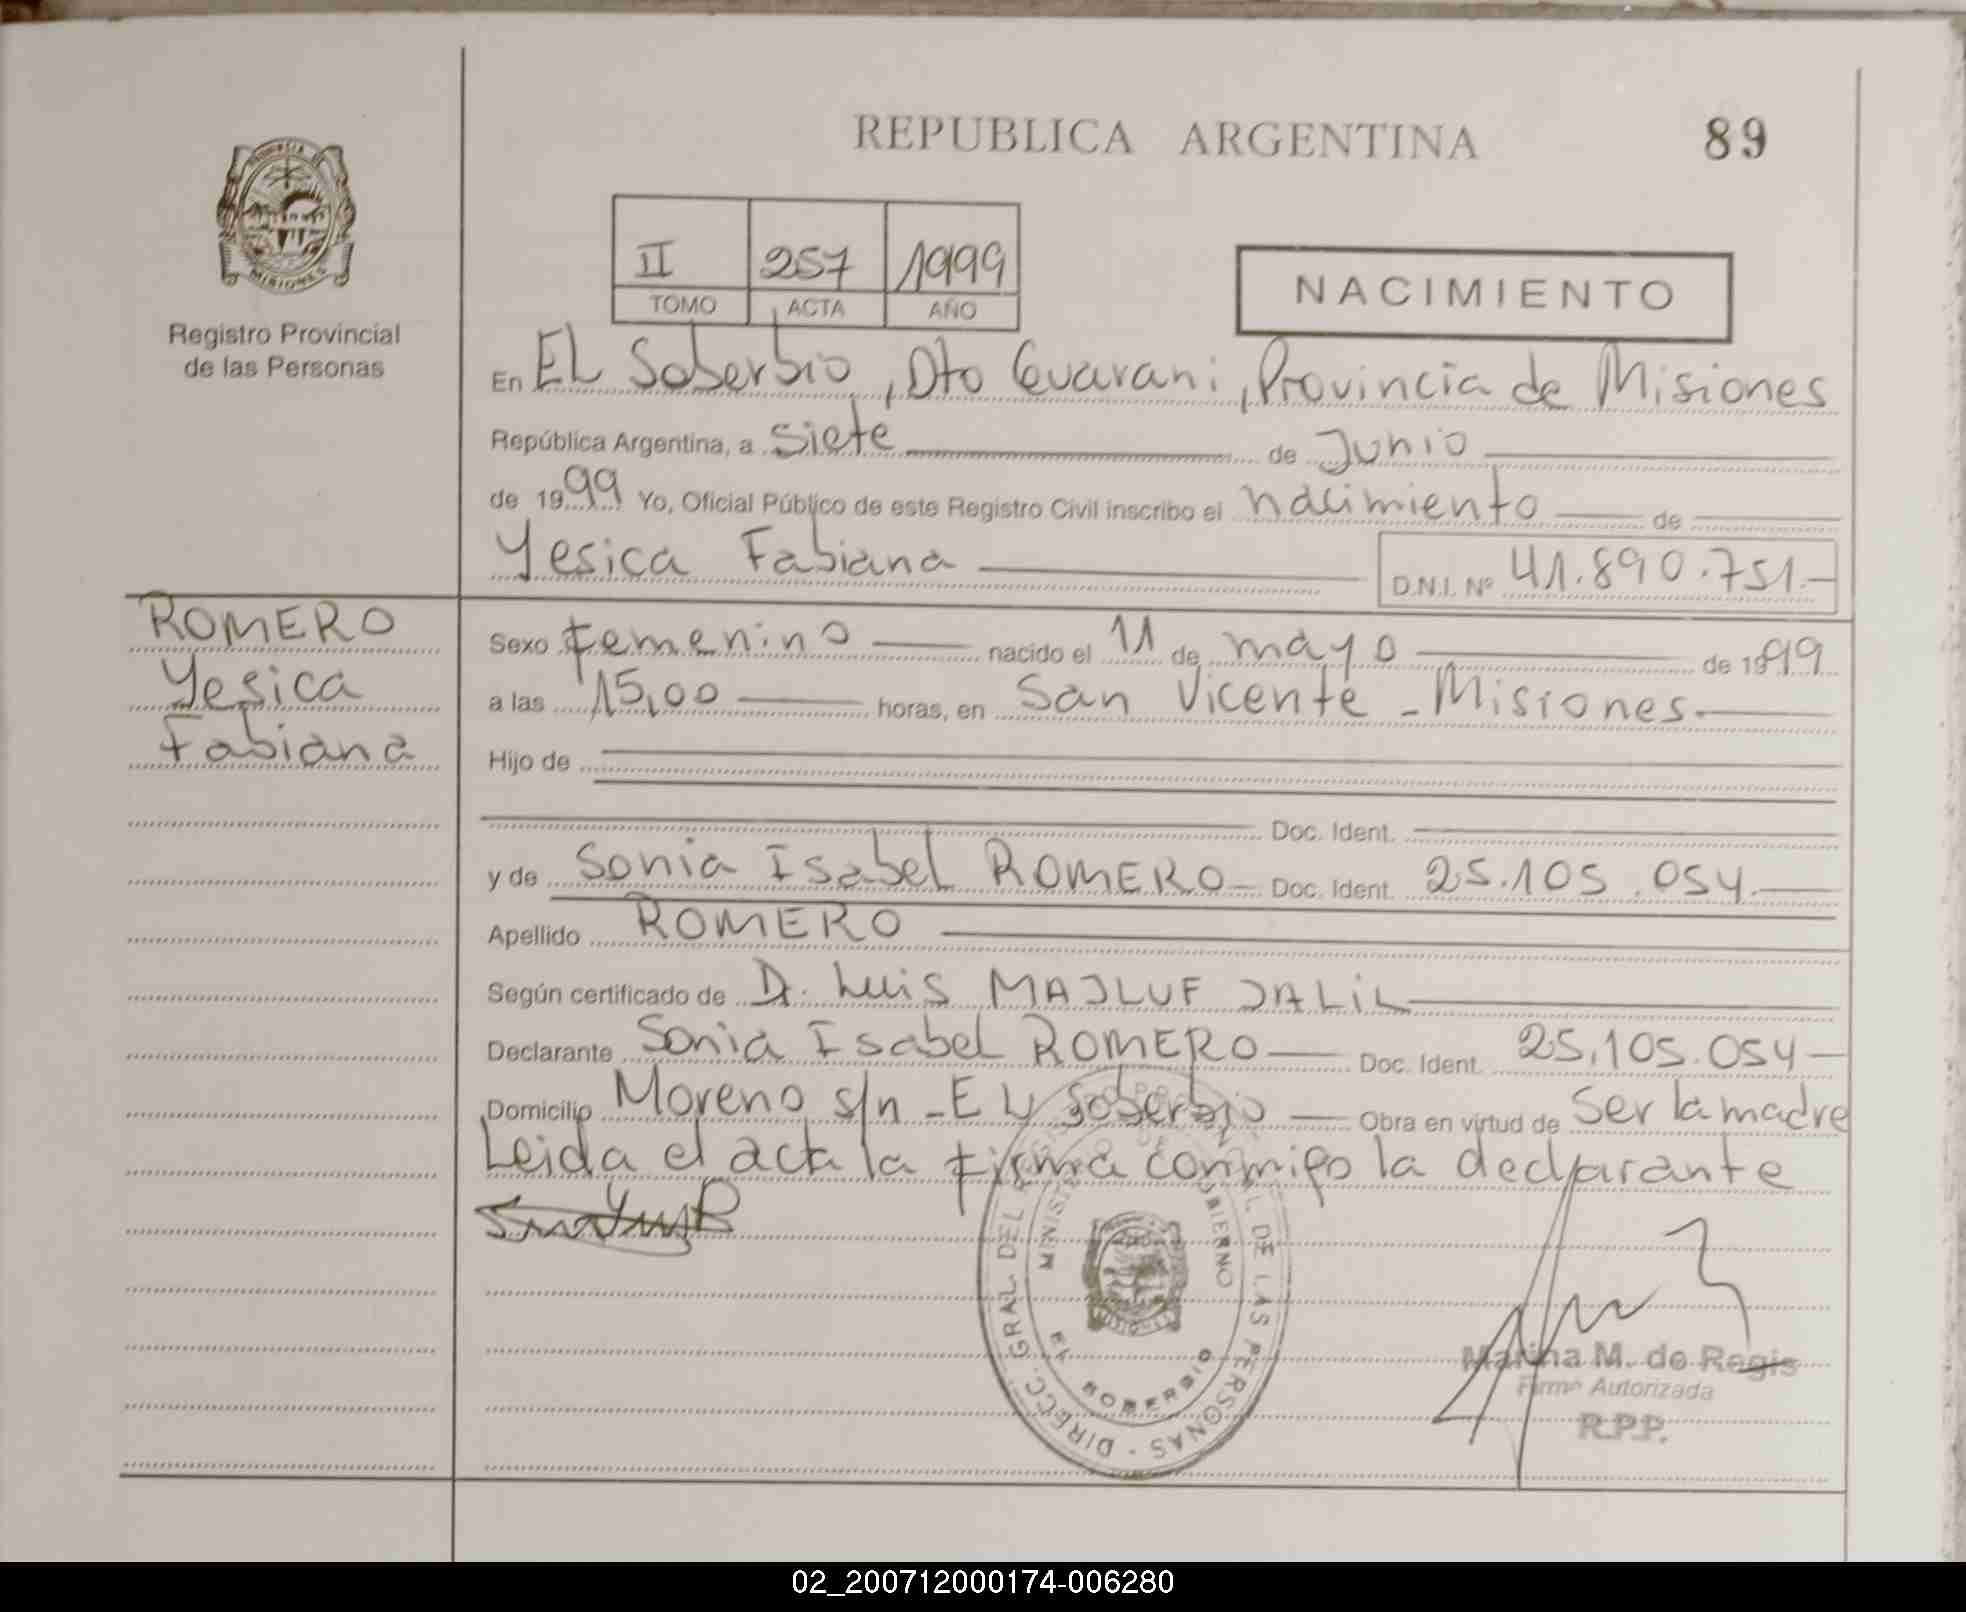 REPUBLICA ARGENTINA
89
PROVINCIA
MISIONES
Registro Provincial
de las Personas
II 257 1999
TOMO ACTA AÑO
NACIMIENTO
En EL Soberbio, Dto Guarani, Provincia de Misiones
República Argentina, a siete de Junio
de 1999 Yo, Oficial Público de este Registro Civil inscribo el nacimiento de
Yesica Fabiana D.N.I. Nº 41.890.751.-
ROMERO
Yesica
Fabiana
Sexo femenino nacido el 11 de mayo de 1999
a las 15,00 horas, en San Vicente - Misiones
Hijo de
Doc. Ident.
y de Sonia Isabel ROMERO Doc. Ident. 25.105.054.
Apellido ROMERO
Según certificado de Dr. Luis MAJLUF JALIL
Declarante Sonia Isabel ROMERO Doc. Ident. 25.105.054
Domicilio Moreno s/n - EL Soberbio Obra en virtud de Ser la madre
Leida el acta la firma conmigo la declarante
DIRECC. GRAL DEL DE LAS PERSONAS
GOBIERNO
EL SOBERBIO
Marina M. de Regis
Firma Autorizada
R.P.P.
02_200712000174-006280